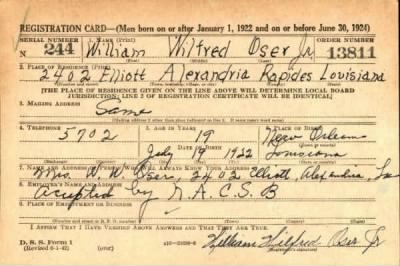 REGISTRATION CARD—(Men born on or after January 1, 1922 and on or before June 30, 1924)
SERIAL NUMBER 1. NAME (Print) ORDER NUMBER
N 244 William Wilfred Oser Jr. 13811
2. PLACE OF RESIDENCE (Print)
2402 Elliott Alexandria Rapides Louisiana
[THE PLACE OF RESIDENCE GIVEN ON THE LINE ABOVE WILL DETERMINE LOCAL BOARD
JURISDICTION; LINE 2 OF REGISTRATION CERTIFICATE WILL BE IDENTICAL]
3. MAILING ADDRESS
Same
4. TELEPHONE 5. AGE IN YEARS 6. PLACE OF BIRTH
5702 19 New Orleans
DATE OF BIRTH
July 19 1922 Louisiana
7. NAME AND ADDRESS OF PERSON WHO WILL ALWAYS KNOW YOUR ADDRESS
Mrs. W. W. Oser, 2402 Elliott Alexandria, La
8. EMPLOYER'S NAME AND ADDRESS
Accepted by N.A.C.S.B
9. PLACE OF EMPLOYMENT OR BUSINESS
I AFFIRM THAT I HAVE VERIFIED ABOVE ANSWERS AND THAT THEY ARE TRUE.
D. S. S. Form 1
(Revised 6-1-42) (over) William Wilfred Oser Jr